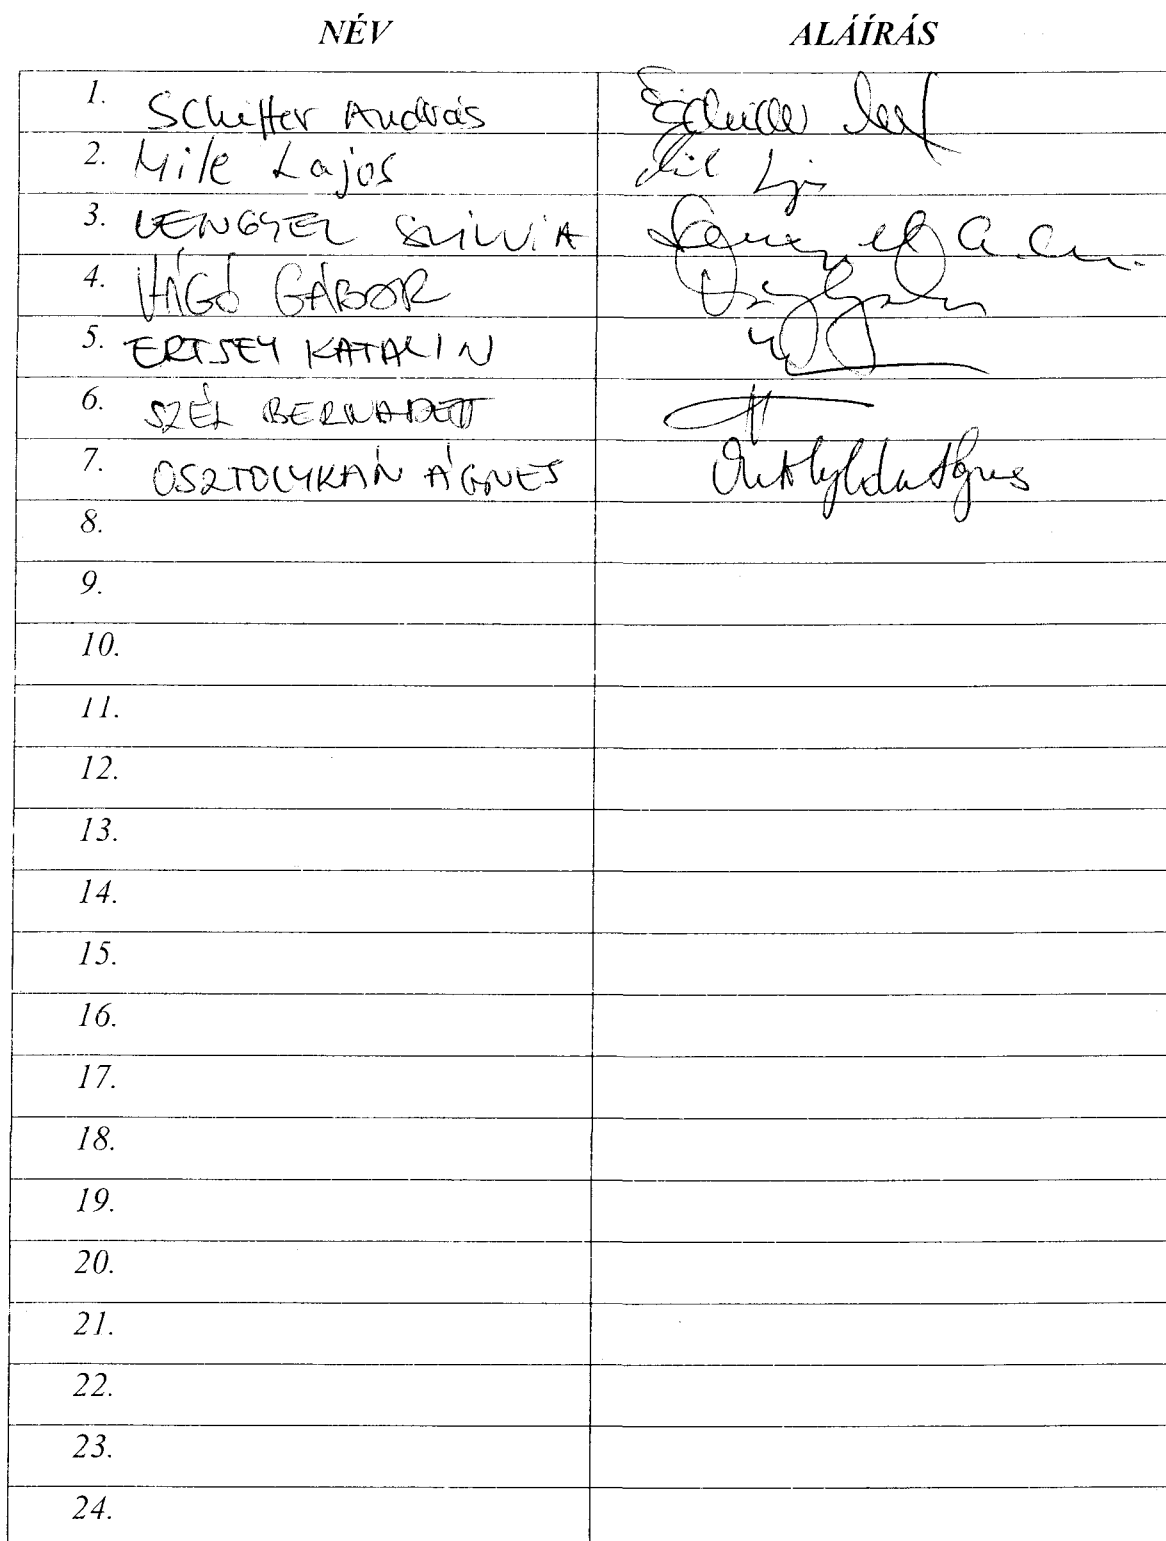 NÉV ALÁÍRÁS
1. Schiffer András
2. Mile Lajos
3. LENGYEL SZILVIA
4. VÁGÓ GÁBOR
5. ERTSEY KATALIN
6. SZÉL BERNADETT
7. OSZTOLYKÁN ÁGNES
8.
9.
10.
11.
12.
13.
14.
15.
16.
17.
18.
19.
20.
21.
22.
23.
24.